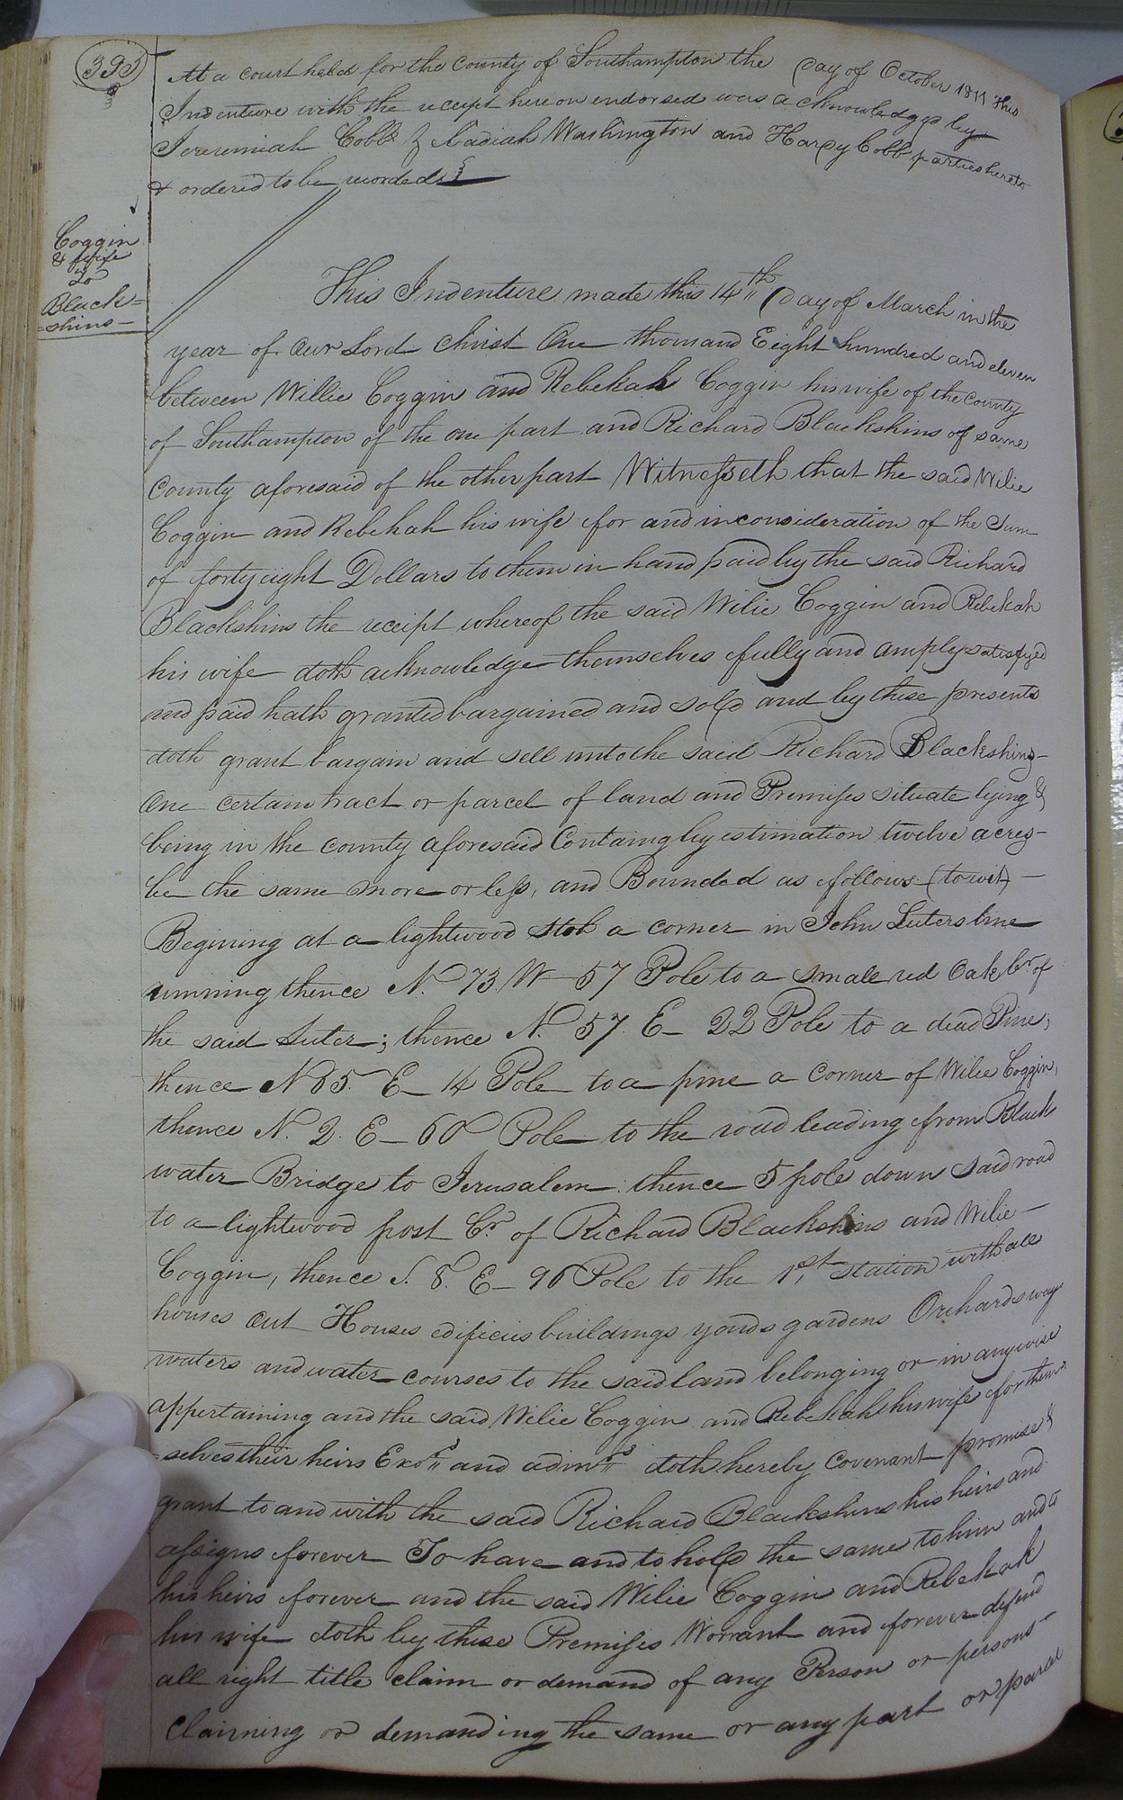 393
At a court held for the County of Southampton the day of October 1811 This
Indenture with the receipt hereon endorsed was acknowledged by
Jeremiah Cobb & Washington and Hardy Cobb parties hereto
& ordered to be recorded
Coggin
& wife
To
Black=
=shins
This Indenture made this 14th day of March in the
year of our Lord Christ One thousand Eight hundred and eleven
between Willie Coggin and Rebekah Coggin his wife of the County
of Southampton of the one part and Richard Blackshins of same
County aforesaid of the other part Witnesseth that the said Wilie
Coggin and Rebekah his wife for and in consideration of the Sum
of forty eight Dollars to them in hand paid by the said Richard
Blackshins the receipt whereof the said Wilie Coggin and Rebekah
his wife doth acknowledge themselves fully and amply satisfyed
and paid hath granted bargained and sold and by these presents
doth grant bargain and sell unto the said Richard Blackshins
One certain tract or parcel of land and Premises situate lying &
being in the county aforesaid Containg by estimation twelve acres
be the same more or less, and Bounded as follows (to wit)
Begining at a lightwood stob a corner in John Luters line
running thence N. 73. W 57 Pole to a small red Oak Cr. of
the said Luter; thence N. 57. E 22 Pole to a dead Pine;
thence N 85. E 14 Pole to a pine a corner of Wilie Coggin,
thence N. 2. E 60 Pole to the road leading from Black
water Bridge to Jerusalem thence 5 pole down said road
to a lightwood post Cr. of Richard Blackshins and Wilie
Coggin, thence S. 8. E 96 Pole to the 1st station with all
houses out Houses edificies buildings yards gardens Orchards ways
waters and water courses to the said land belonging or in anywise
appertaining and the said Wilie Coggin and Rebekah his wife for them
selves their heirs Exors and admrs doth hereby covenant promise &
grant to and with the said Richard Blackshins his heirs and
assigns forever To have and to hold the same to him and
his heirs forever and the said Wilie Coggin and Rebekah
his wife doth by these Premises Worrant and forever defend
all right title claim or demand of any Person or persons
Claiming or demanding the same or any part or parcel